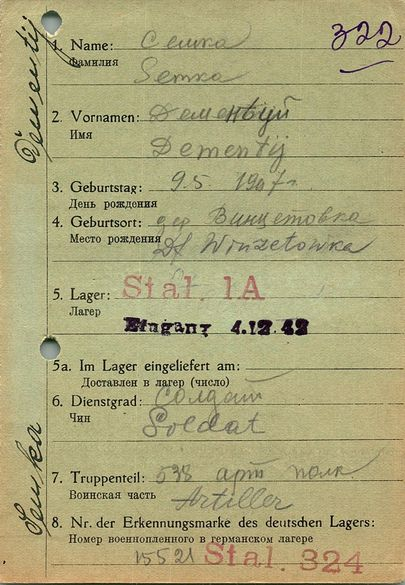 322
1. Name: Семка
Фамилия Semka
2. Vornamen: Дементий
Имя Dementij
3. Geburtstag: 9.5. 1907 г.
День рождения
4. Geburtsort: дер Винцетовка
Место рождения Df Winzetowka
5. Lager: Stal. IA
Лагер
Eingang 4.12.42
5a. Im Lager eingeliefert am:
Доставлен в лагер (число)
6. Dienstgrad: Солдат
Чин Soldat
7. Truppenteil: 538 арт полк
Воинская часть Artiller
8. Nr. der Erkennungsmarke des deutschen Lagers:
Номер военнопленного в германском лагере
15521 Stal. 324
Dementij
Semka